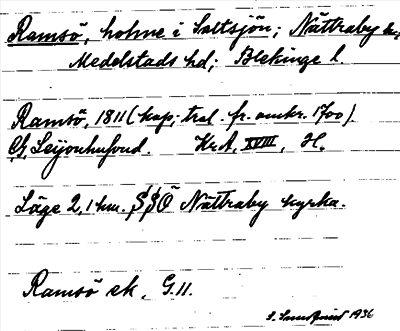 Ramsö, holme i Saltsjön; Nättraby
Medelstads hd; Blekinge l.
Ramsö, 1811 (kop; tral. fr. omkr. 1700).
G. Leijonhufvud. Kr.A. XVIII, H.
Läge 2,1 km. SSÖ Nättraby kyrka.
Ramsö ek. G.11.
1936